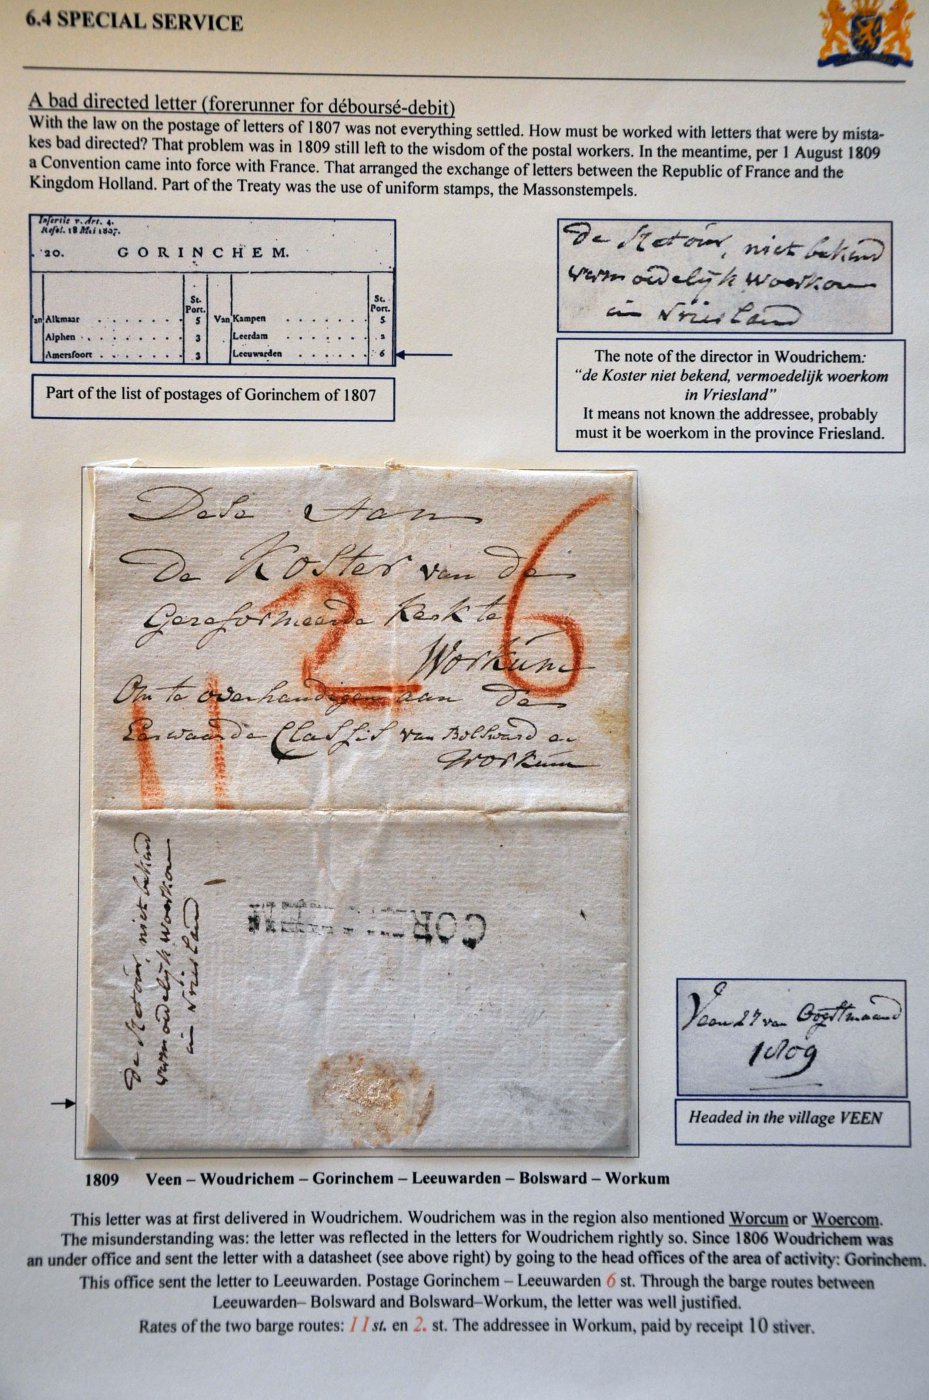 6.4 SPECIAL SERVICE
A bad directed letter (forerunner for déboursé-debit)
With the law on the postage of letters of 1807 was not everything settled. How must be worked with letters that were by mista-
kes bad directed? That problem was in 1809 still left to the wisdom of the postal workers. In the meantime, per 1 August 1809
a Convention came into force with France. That arranged the exchange of letters between the Republic of France and the
Kingdom Holland. Part of the Treaty was the use of uniform stamps, the Massonstempels.
Insertie v. Art. 4.
Resol. 18 Mei 1807.
20. GORINCHEM.
St. Port. St. Port.
Van Alkmaar 5 Van Kampen 5
Alphen 3 Leerdam 2
Amersfoort 3 Leeuwarden 6
Part of the list of postages of Gorinchem of 1807
de Retour, niet bekend
vermoedelijk woerkom
in Vriesland
The note of the director in Woudrichem:
“de Koster niet bekend, vermoedelijk woerkom
in Vriesland”
It means not known the addressee, probably
must it be woerkom in the province Friesland.
Dese Aan
De Koster van de
Gereformeerde Kerk te
Workum
Om te overhandigen aan de
Eerwaarde Classis van Bolsward en
Workum
6
2
11
de Retour, niet bekend
vermoedelijk woerkom
in Vriesland
GORINCHEM
Veen 27 van Oogstmaand
1809
Headed in the village VEEN
1809 Veen – Woudrichem – Gorinchem – Leeuwarden – Bolsward – Workum
This letter was at first delivered in Woudrichem. Woudrichem was in the region also mentioned Worcum or Woercom.
The misunderstanding was: the letter was reflected in the letters for Woudrichem rightly so. Since 1806 Woudrichem was
an under office and sent the letter with a datasheet (see above right) by going to the head offices of the area of activity: Gorinchem.
This office sent the letter to Leeuwarden. Postage Gorinchem – Leeuwarden 6 st. Through the barge routes between
Leeuwarden– Bolsward and Bolsward–Workum, the letter was well justified.
Rates of the two barge routes: 11 st. en 2. st. The addressee in Workum, paid by receipt 10 stiver.